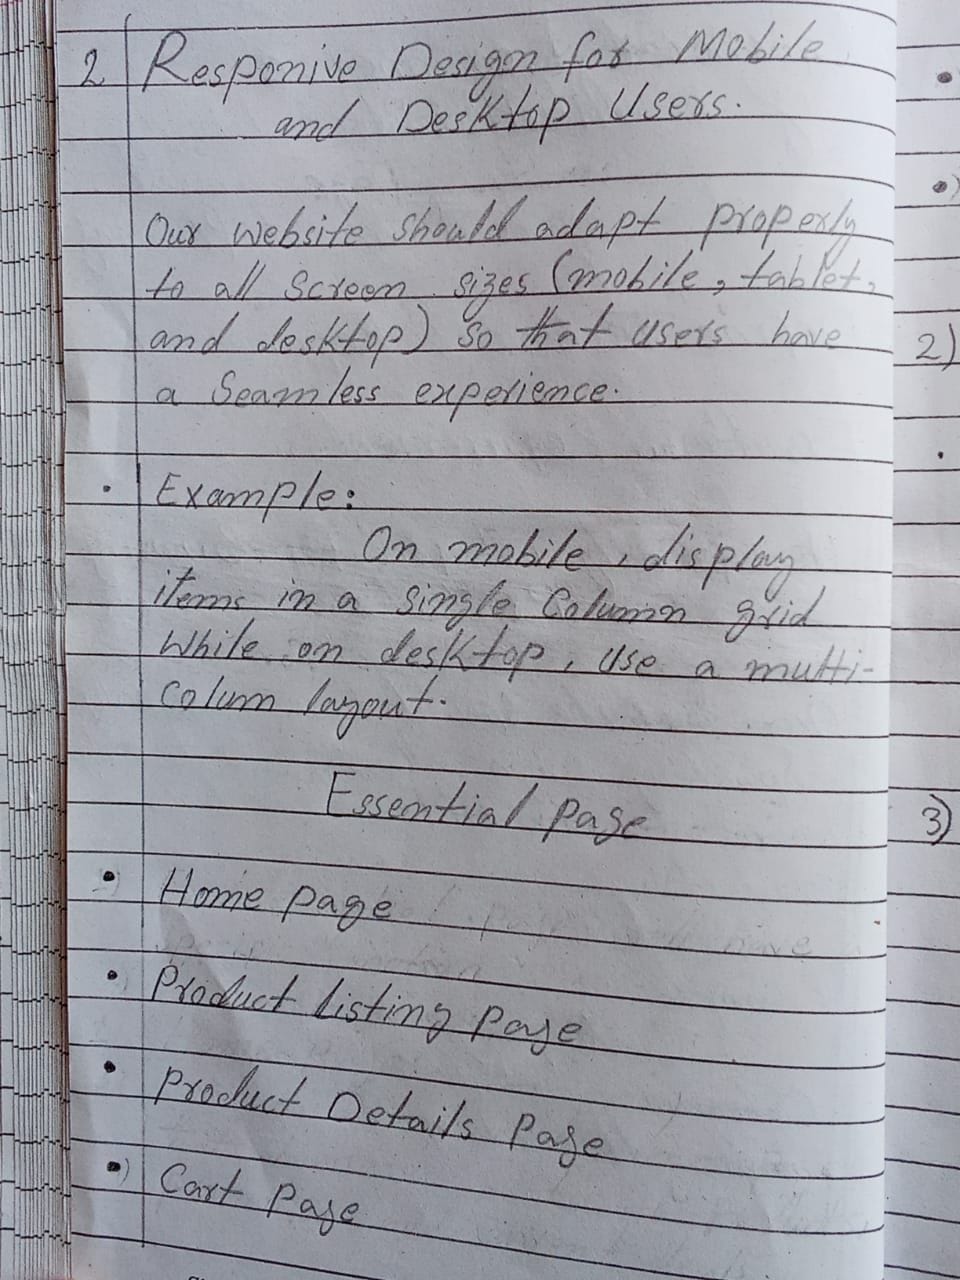 2 Responive Design for Mobile
and Desktop Users.
Our website should adapt properly
to all Screen sizes (mobile, tablet,
and desktop) so that users have
a Seamless experience.
• Example:
On mobile, display
items in a single Column grid
While on desktop, use a multi-
colum layout.
Essential Page
• Home page
• Product Listing Page
• Product Details Page
•) Cart Page
•
•)
2)
•
3)